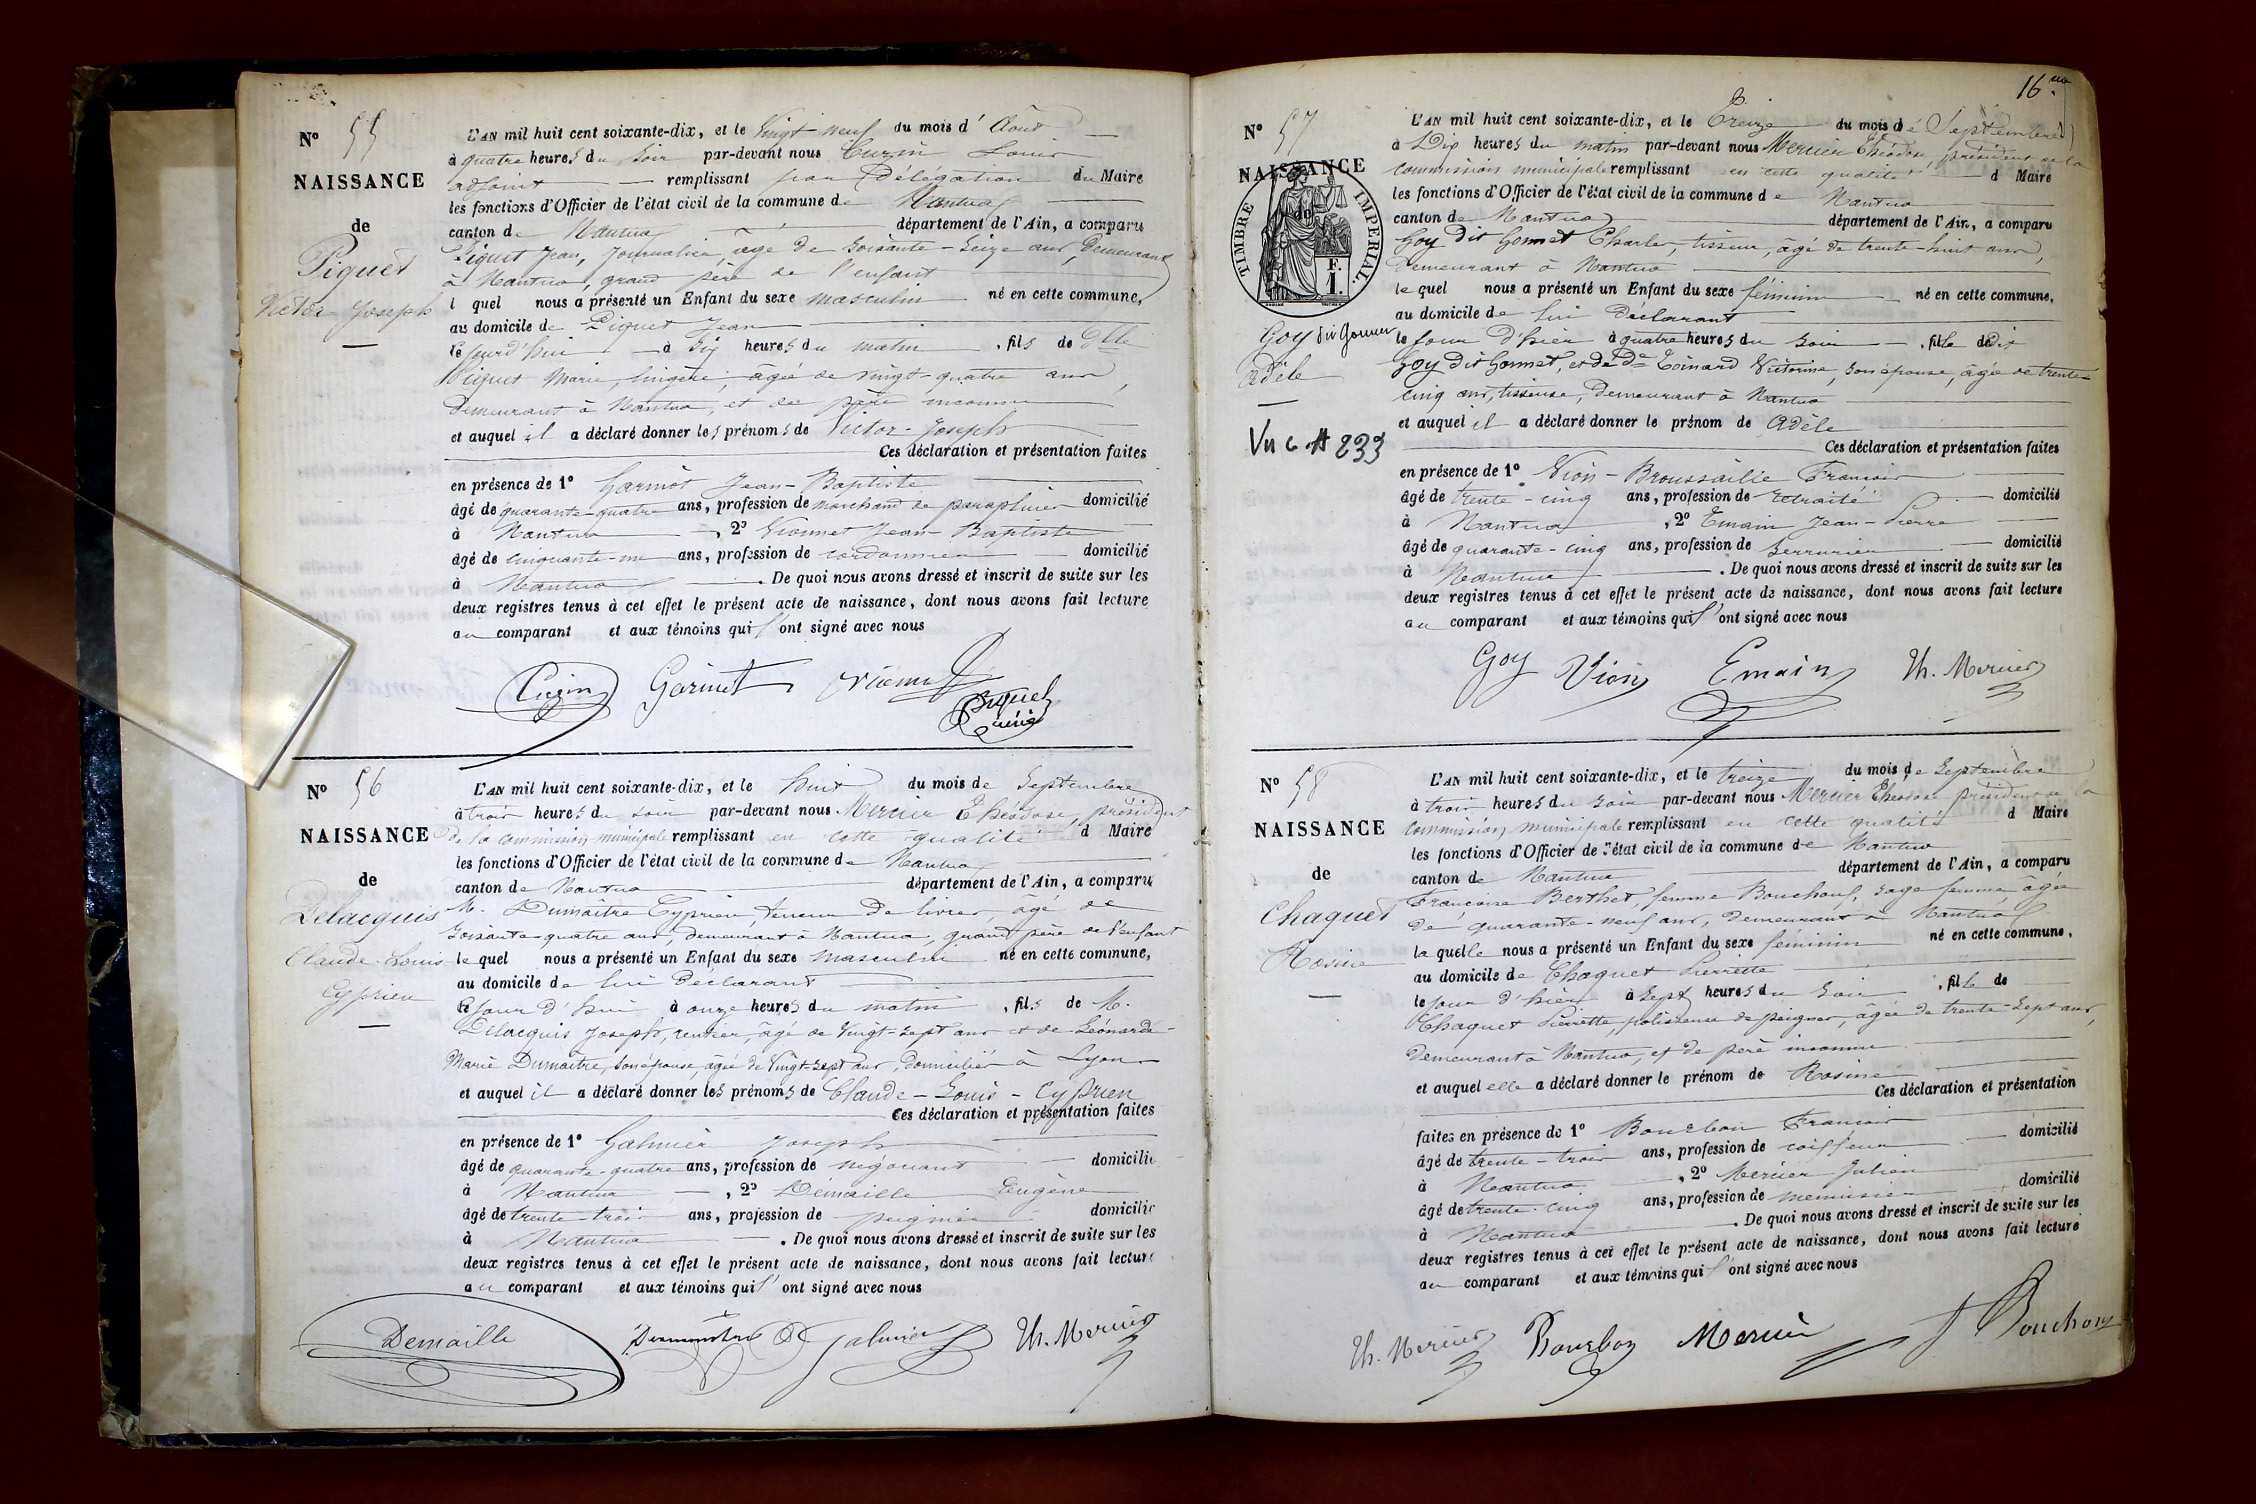 N° 55
NAISSANCE
de
Piquet
Victor Joseph
L'AN mil huit cent soixante-dix, et le vingt-neuf du mois d'Août
à quatre heures du soir par-devant nous Curzin Louis
adjoint remplissant par Délégation du Maire
les fonctions d'Officier de l'état civil de la commune de Nantua
canton de Nantua département de l'Ain, a comparu
Piquet Jean, Journalier, âgé de soixante-seize ans, demeurant
à Nantua, grand père de l'enfant
lequel nous a présenté un Enfant du sexe masculin né en cette commune,
au domicile de Piquet Jean
le jourd'hui à six heures du matin, fils de Dlle
Piquet Marie, lingère, âgée de vingt-quatre ans,
demeurant à Nantua, et de père inconnu
et auquel il a déclaré donner les prénoms de Victor-Joseph
Ces déclaration et présentation faites
en présence de 1° Garinot Jean-Baptiste
âgé de quarante-quatre ans, profession de marchand de parapluies domicilié
à Nantua, 2° Vionnet Jean Baptiste
âgé de cinquante-un ans, profession de cordonnier domicilié
à Nantua. De quoi nous avons dressé et inscrit de suite sur les
deux registres tenus à cet effet le présent acte de naissance, dont nous avons fait lecture
au comparant et aux témoins qui l'ont signé avec nous
N° 56
NAISSANCE
de
Delacquis
Claude-Louis
Cyprien
L'AN mil huit cent soixante-dix, et le huit du mois de Septembre
à trois heures du soir par-devant nous Mercier Théodose, président
de la commission municipale remplissant en cette qualité d Maire
les fonctions d'Officier de l'état civil de la commune de Nantua
canton de Nantua département de l'Ain, a comparu
M. Dumaître Cyprien, teneur de livres, âgé de
soixante-quatre ans, demeurant à Nantua, grand père de l'enfant
lequel nous a présenté un Enfant du sexe masculin né en cette commune,
au domicile de lui déclarant
le jour d'hui à onze heures du matin, fils de M.
Delacquis Joseph, rentier, âgé de vingt-sept ans et de Léonarde-
Marie Dumaître, son épouse, âgée de vingt-sept ans, domiciliés à Lyon
et auquel il a déclaré donner les prénoms de Claude-Louis-Cyprien
Ces déclaration et présentation faites
en présence de 1° Galmier Joseph
âgé de quarante-quatre ans, profession de négociant domicilié
à Nantua, 2° Démaille Eugène
âgé de trente-trois ans, profession de peignier domicilié
à Nantua. De quoi nous avons dressé et inscrit de suite sur les
deux registres tenus à cet effet le présent acte de naissance, dont nous avons fait lecture
au comparant et aux témoins qui l'ont signé avec nous
Demaille Galmier Th. Mercier
16
N° 57
NAISSANCE
de
TIMBRE IMPERIAL
F.
1.
Goy dit Gonnet
Adèle
Vu
L'AN mil huit cent soixante-dix, et le Treize du mois de Septembre
à Dix heures du matin par-devant nous Mercier Théodose, président de la
commission municipale remplissant en cette qualité d Maire
les fonctions d'Officier de l'état civil de la commune de Nantua
canton de Nantua département de l'Ain, a comparu
Goy dit Gonnet Charles, tisseur, âgé de trente-huit ans,
demeurant à Nantua
lequel nous a présenté un Enfant du sexe féminin né en cette commune,
au domicile de lui déclarant
le jour d'hier à quatre heures du soir, fille dudit
Goy dit Gonnet, et de De Toinard Victorine, son épouse, âgée de trente-
cinq ans, tisseuse, demeurant à Nantua
et auquel il a déclaré donner le prénom de Adèle
Ces déclaration et présentation faites
en présence de 1° Vion-Broussaille François
âgé de trente-cinq ans, profession de retraité domicilié
à Nantua, 2° Emain Jean-Pierre
âgé de quarante-cinq ans, profession de serrurier domicilié
à Nantua. De quoi nous avons dressé et inscrit de suite sur les
deux registres tenus à cet effet le présent acte de naissance, dont nous avons fait lecture
au comparant et aux témoins qui l'ont signé avec nous
Goy Vion Emain Th. Mercier
N° 58
NAISSANCE
de
Chaquet
Rosine
L'AN mil huit cent soixante-dix, et le treize du mois de Septembre
à trois heures du soir par-devant nous Mercier Théodose président de la
commission municipale remplissant en cette qualité d Maire
les fonctions d'Officier de l'état civil de la commune de Nantua
canton de Nantua département de l'Ain, a comparu
Françoise Berthet, femme Bouchon, sage femme âgée
de quarante-neuf ans, demeurant à Nantua
laquelle nous a présenté un Enfant du sexe féminin né en cette commune,
au domicile de Chaquet Pierrette
le jour d'hier à sept heures du soir, fille de
Chaquet Pierrette, polisseuse de peignes, âgée de trente-sept ans,
demeurant à Nantua, et de père inconnu
et auquel elle a déclaré donner le prénom de Rosine
Ces déclaration et présentation
faites en présence de 1° Bourbon François
âgé de trente-trois ans, profession de coiffeur domicilié
à Nantua, 2° Mercier Julien
âgé de trente-cinq ans, profession de menuisier domicilié
à Nantua. De quoi nous avons dressé et inscrit de suite sur les
deux registres tenus à cet effet le présent acte de naissance, dont nous avons fait lecture
au comparant et aux témoins qui l'ont signé avec nous
Th. Mercier Bourbon Mercier F Bouchon